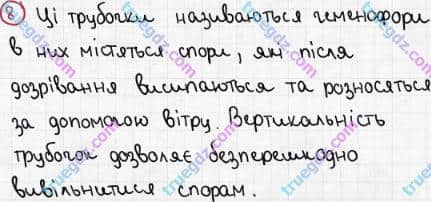 8) Ці трубочки називаються гіменофори
в них містяться спори, які після
дозрівання висипаються та розносяться
за допомогою вітру. Вертикальність
трубочок дозволяє безперешкодно
вивільнитися спорам.